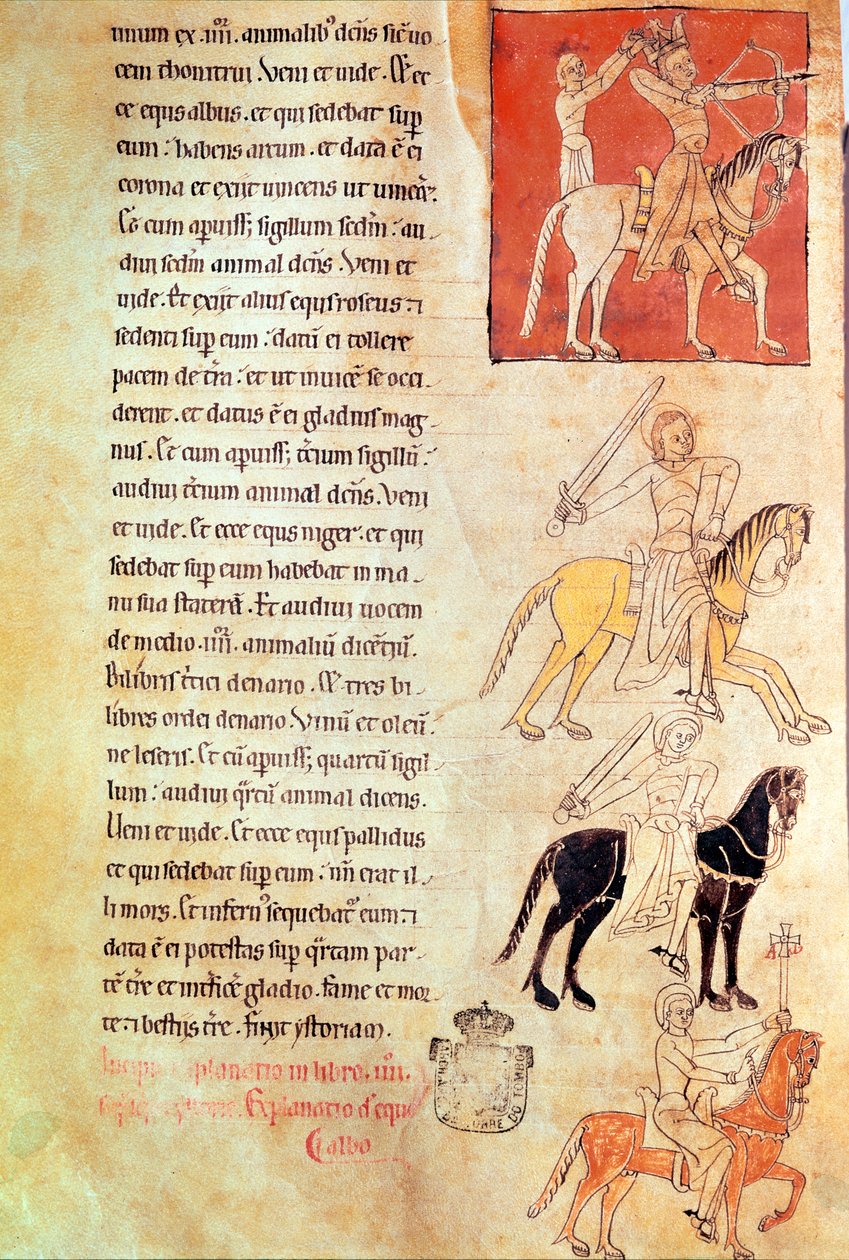 unum ex .iiii. animalib; dc̄ns sic̄ uo
cem thonitrui. Veni et uide. Et ec
ce equs albus. et qui sedebat sup
eum: habens arcum. et data ē ei
corona et exiit uincens ut uinc̄er.
Et cum apuiss; sigillum sedm̄: au
diui sedm̄ animal dc̄ns. Veni et
uide. Et exiit alius equs roseus ⁊
sedenti sup eum: datū ei tollere
pacem de tr̄ra: et ut inuicē se occi
derent. et datus ē ei gladius mag
nus. Et cum apuiss; tc̄ium sigillū:
audiui tc̄ium animal dc̄ns. Veni
et uide. Et ecce equs niger. et qui
sedebat sup eum habebat in ma
nu sua staterā. Et audiui uocem
de medio .iiii. animaliū dicētiū.
Bilibris tͥtici denario. Et tres bi
libres ordei denario. Vinū et oleū
ne leseris. Et cū apuiss; quartū sigil
lum: audiui qr̄tū animal dicens.
Veni et uide. Et ecce equs pallidus
et qui sedebat sup eum: nn̄ erat il
li mors. Et infern᾽ sequebat᾽ eum ⁊
data ē ei potestas sup qr̄tam par
tē tr̄re et int̄ficer̄ gladio. fame et mor
te. ⁊ bestiis tr̄re. finit ystoriam.
Incipit explanatio in libro .iiii.
Explanatio d' equo
albo
DO TOMBO